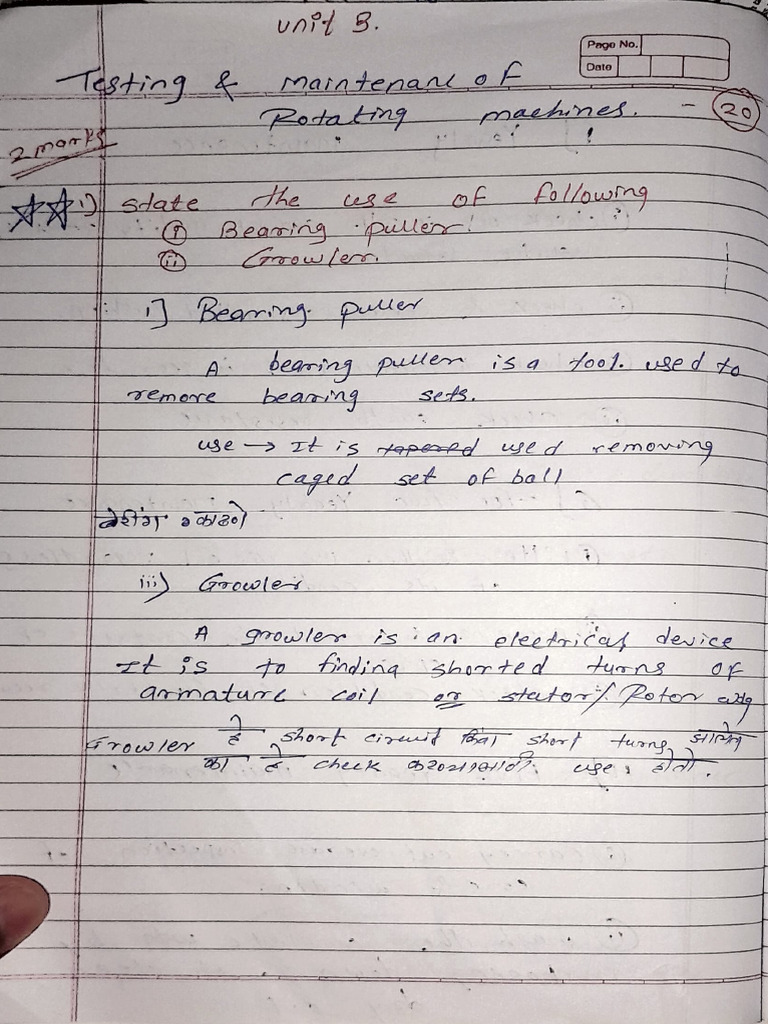 Unit 3.
Page No.
Date
Testing & maintenanc of
Rotating machines. - 20
2 marks
i) State the use of following
i Bearing puller
ii Growler.
i] Bearing puller
A bearing puller is a tool. used to
remove bearing sets.
use → It is used removing
caged set of ball
बेरींग काढणे
iii) Growler
A growler is an electrical device
It is to finding shorted turns of
armature coil or stator/Rotor wdg
Growler हे short circuit किंवा short turns झालेत
का हे check करण्यासाठी use होतो.